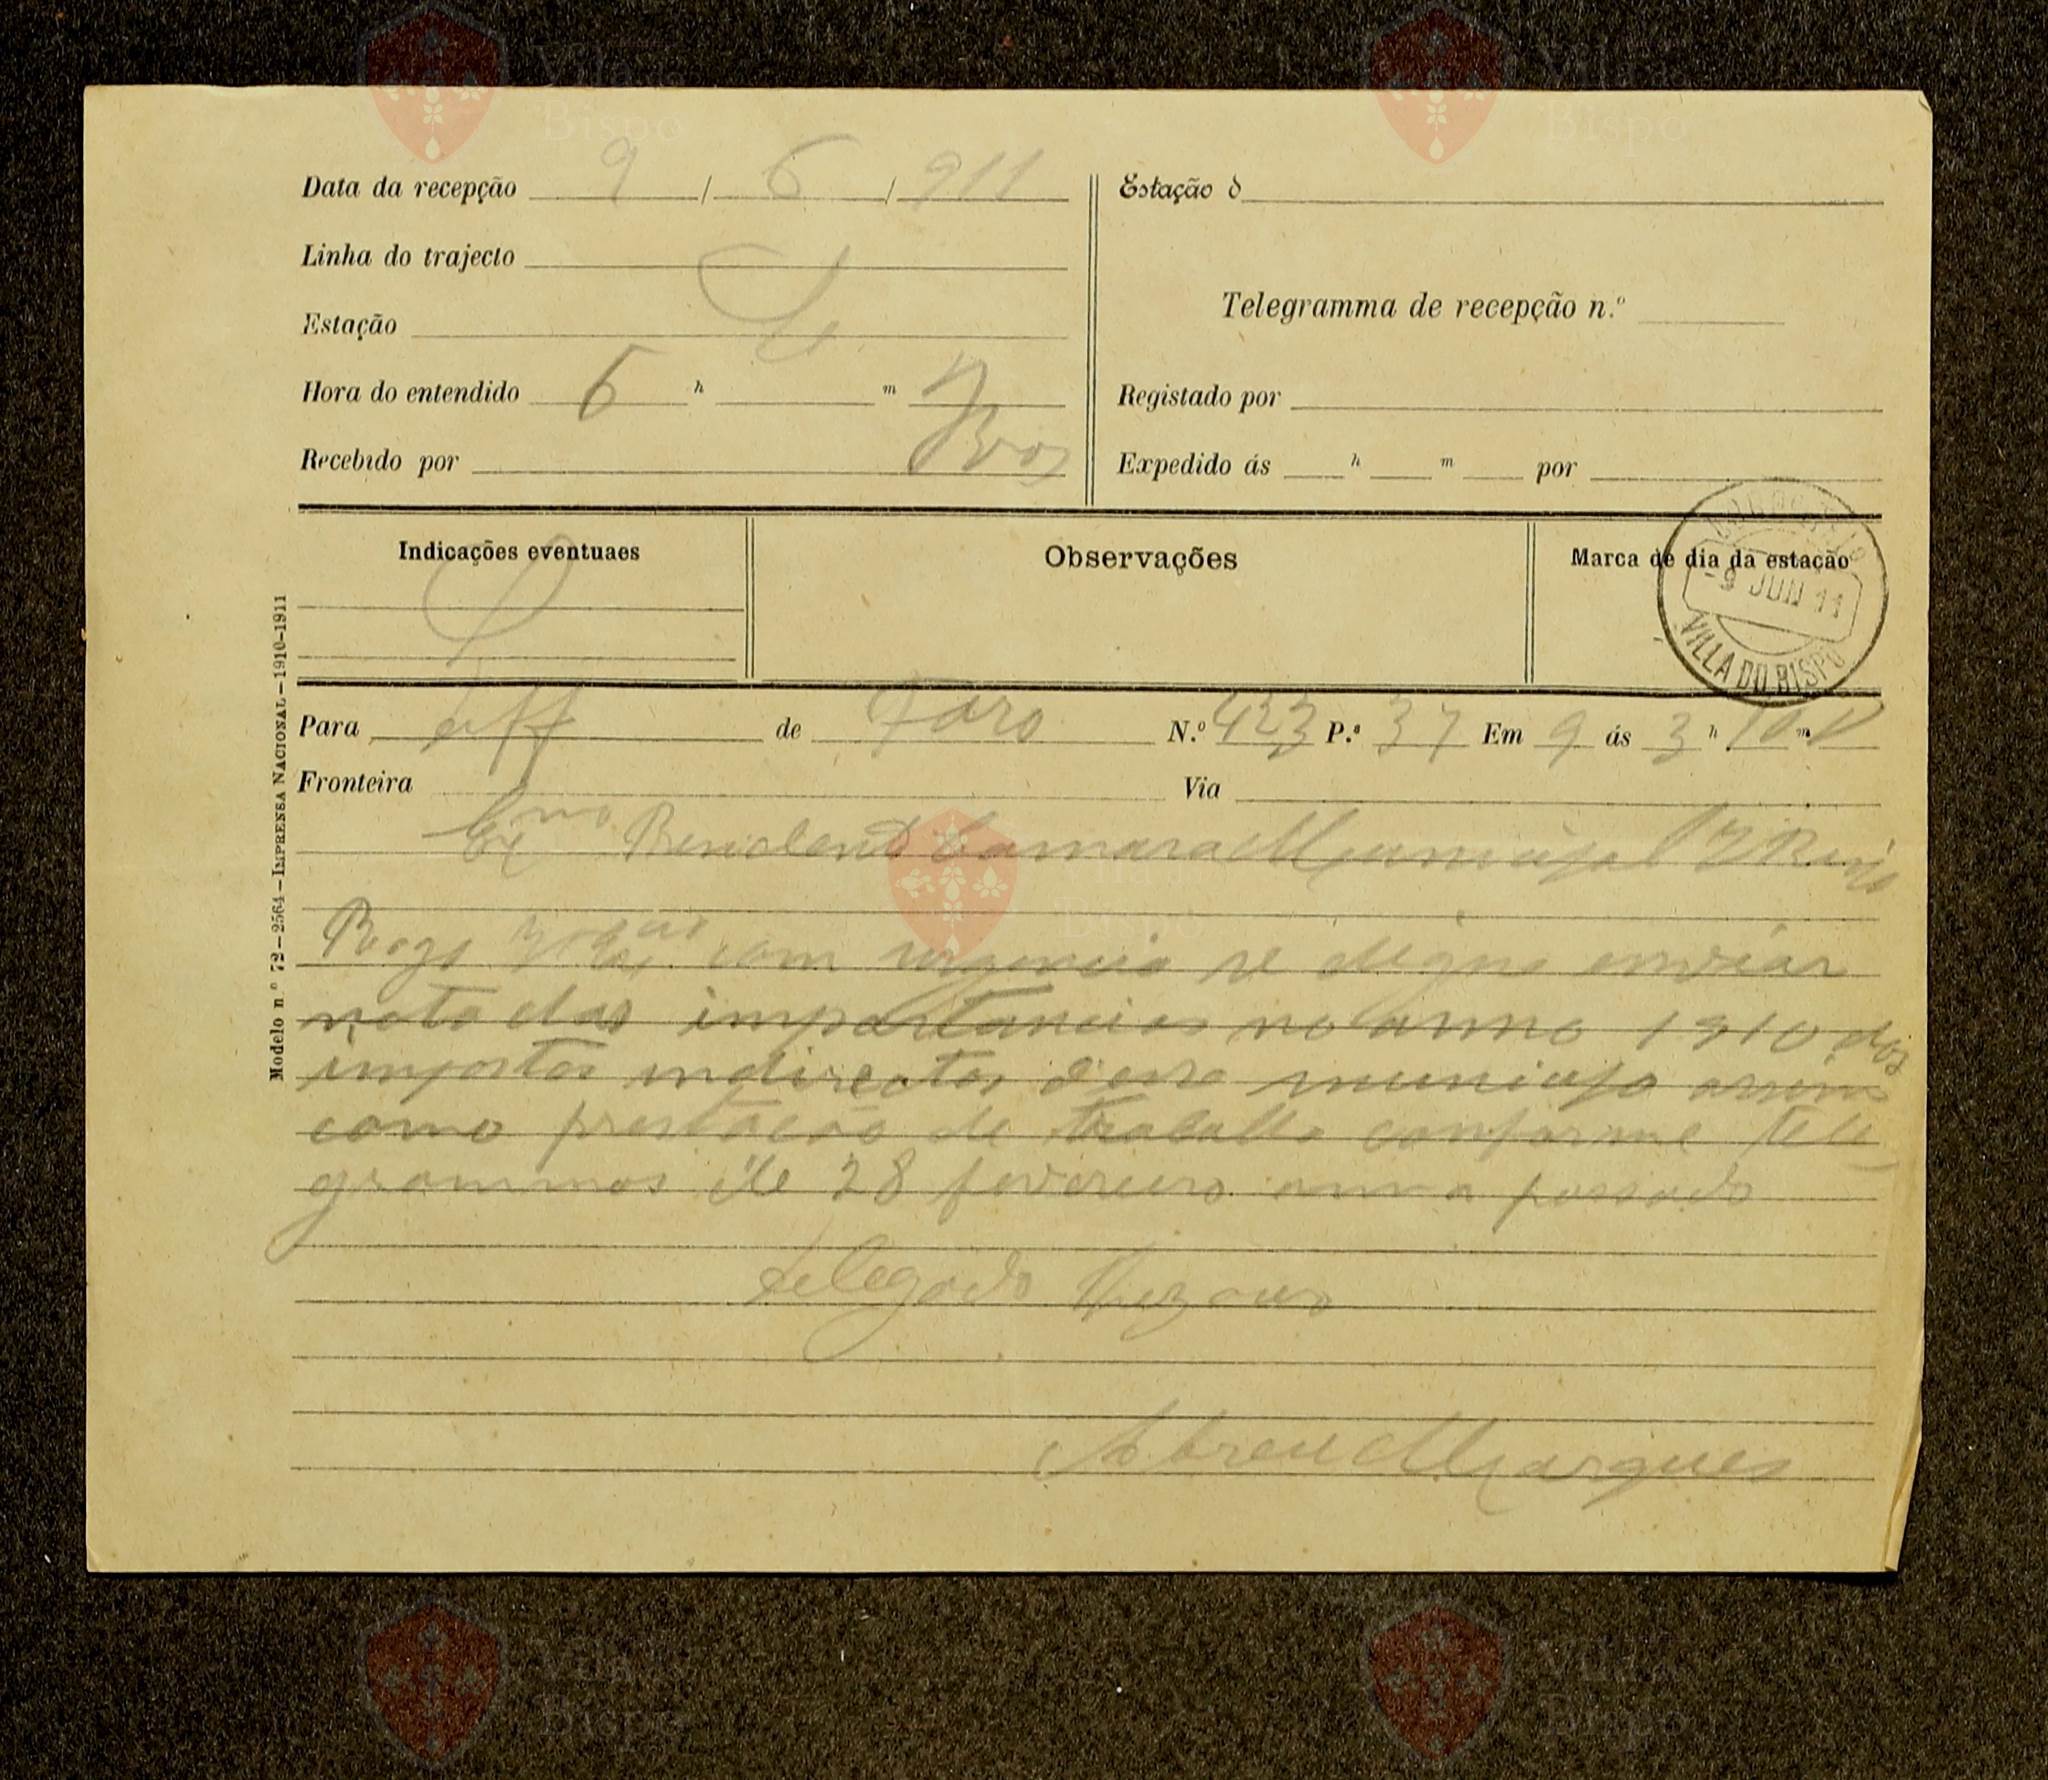 Data da recepção 9 / 6 / 911
Linha do trajecto
Estação
Hora do entendido 6 h m
Recebido por
Estação d
Telegramma de recepção n.º
Registado por
Expedido ás h m por
Indicações eventuaes
Observações
Marca de dia da estação
-9 JUN 11
VILLA DO BISPO
Para de Faro N.º 423 P.ª 37 Em 9 ás 3 h m
Fronteira Via
Exmo Presidente Camara Municipal V Bispo
Rogo com urgencia se digne enviar
nota das importancias no anno 1910 dos
impostos indirectos d'esse municipio assim
como prestação de trabalho conforme tele
grammas de 28 fevereiro anno passado
delegado thezouro
Abreu Marques
Modelo n.º 72 — 2564 — IMPRENSA NACIONAL — 1910-1911
Vila do
Bispo
Vila do
Bispo
Vila do
Bispo
Vila do
Bispo
Vila do
Bispo